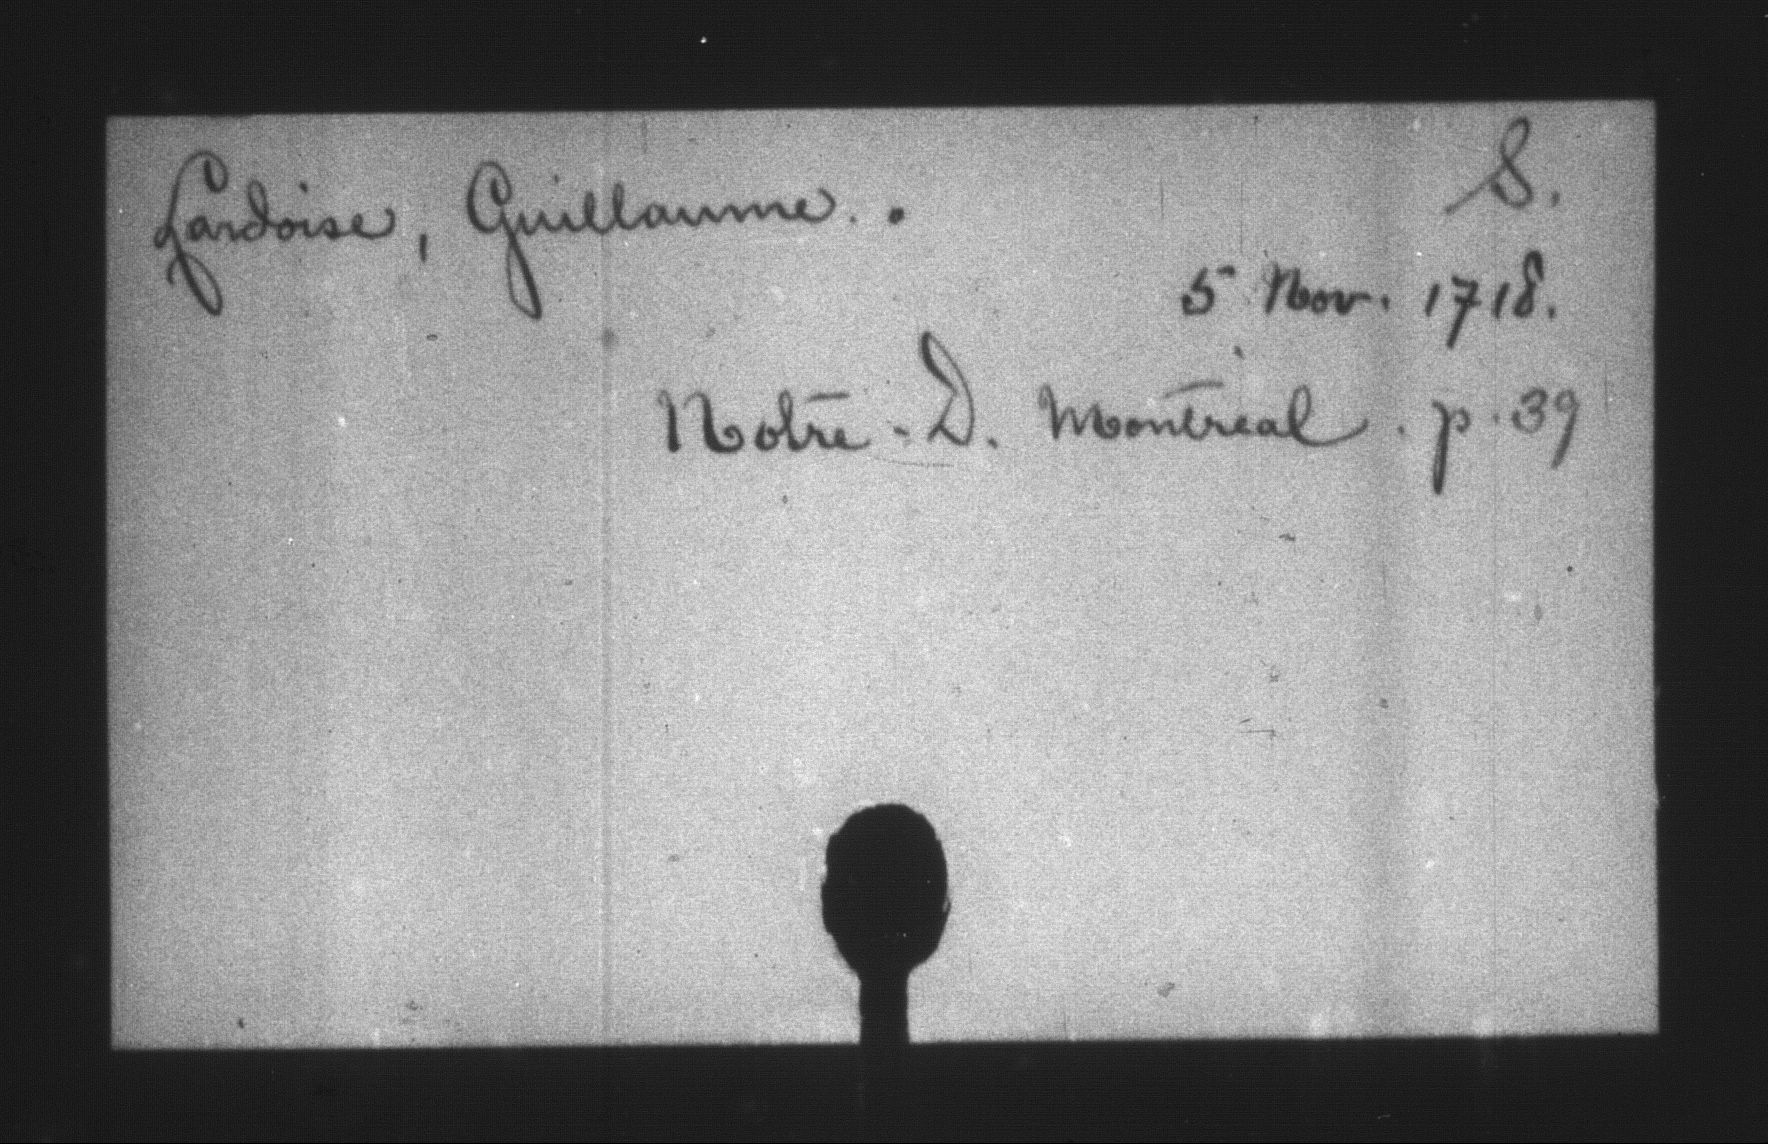 S.
Lardoise, Guillaume. .
5 Nov. 1718.
Notre-D. Montréal. p. 39